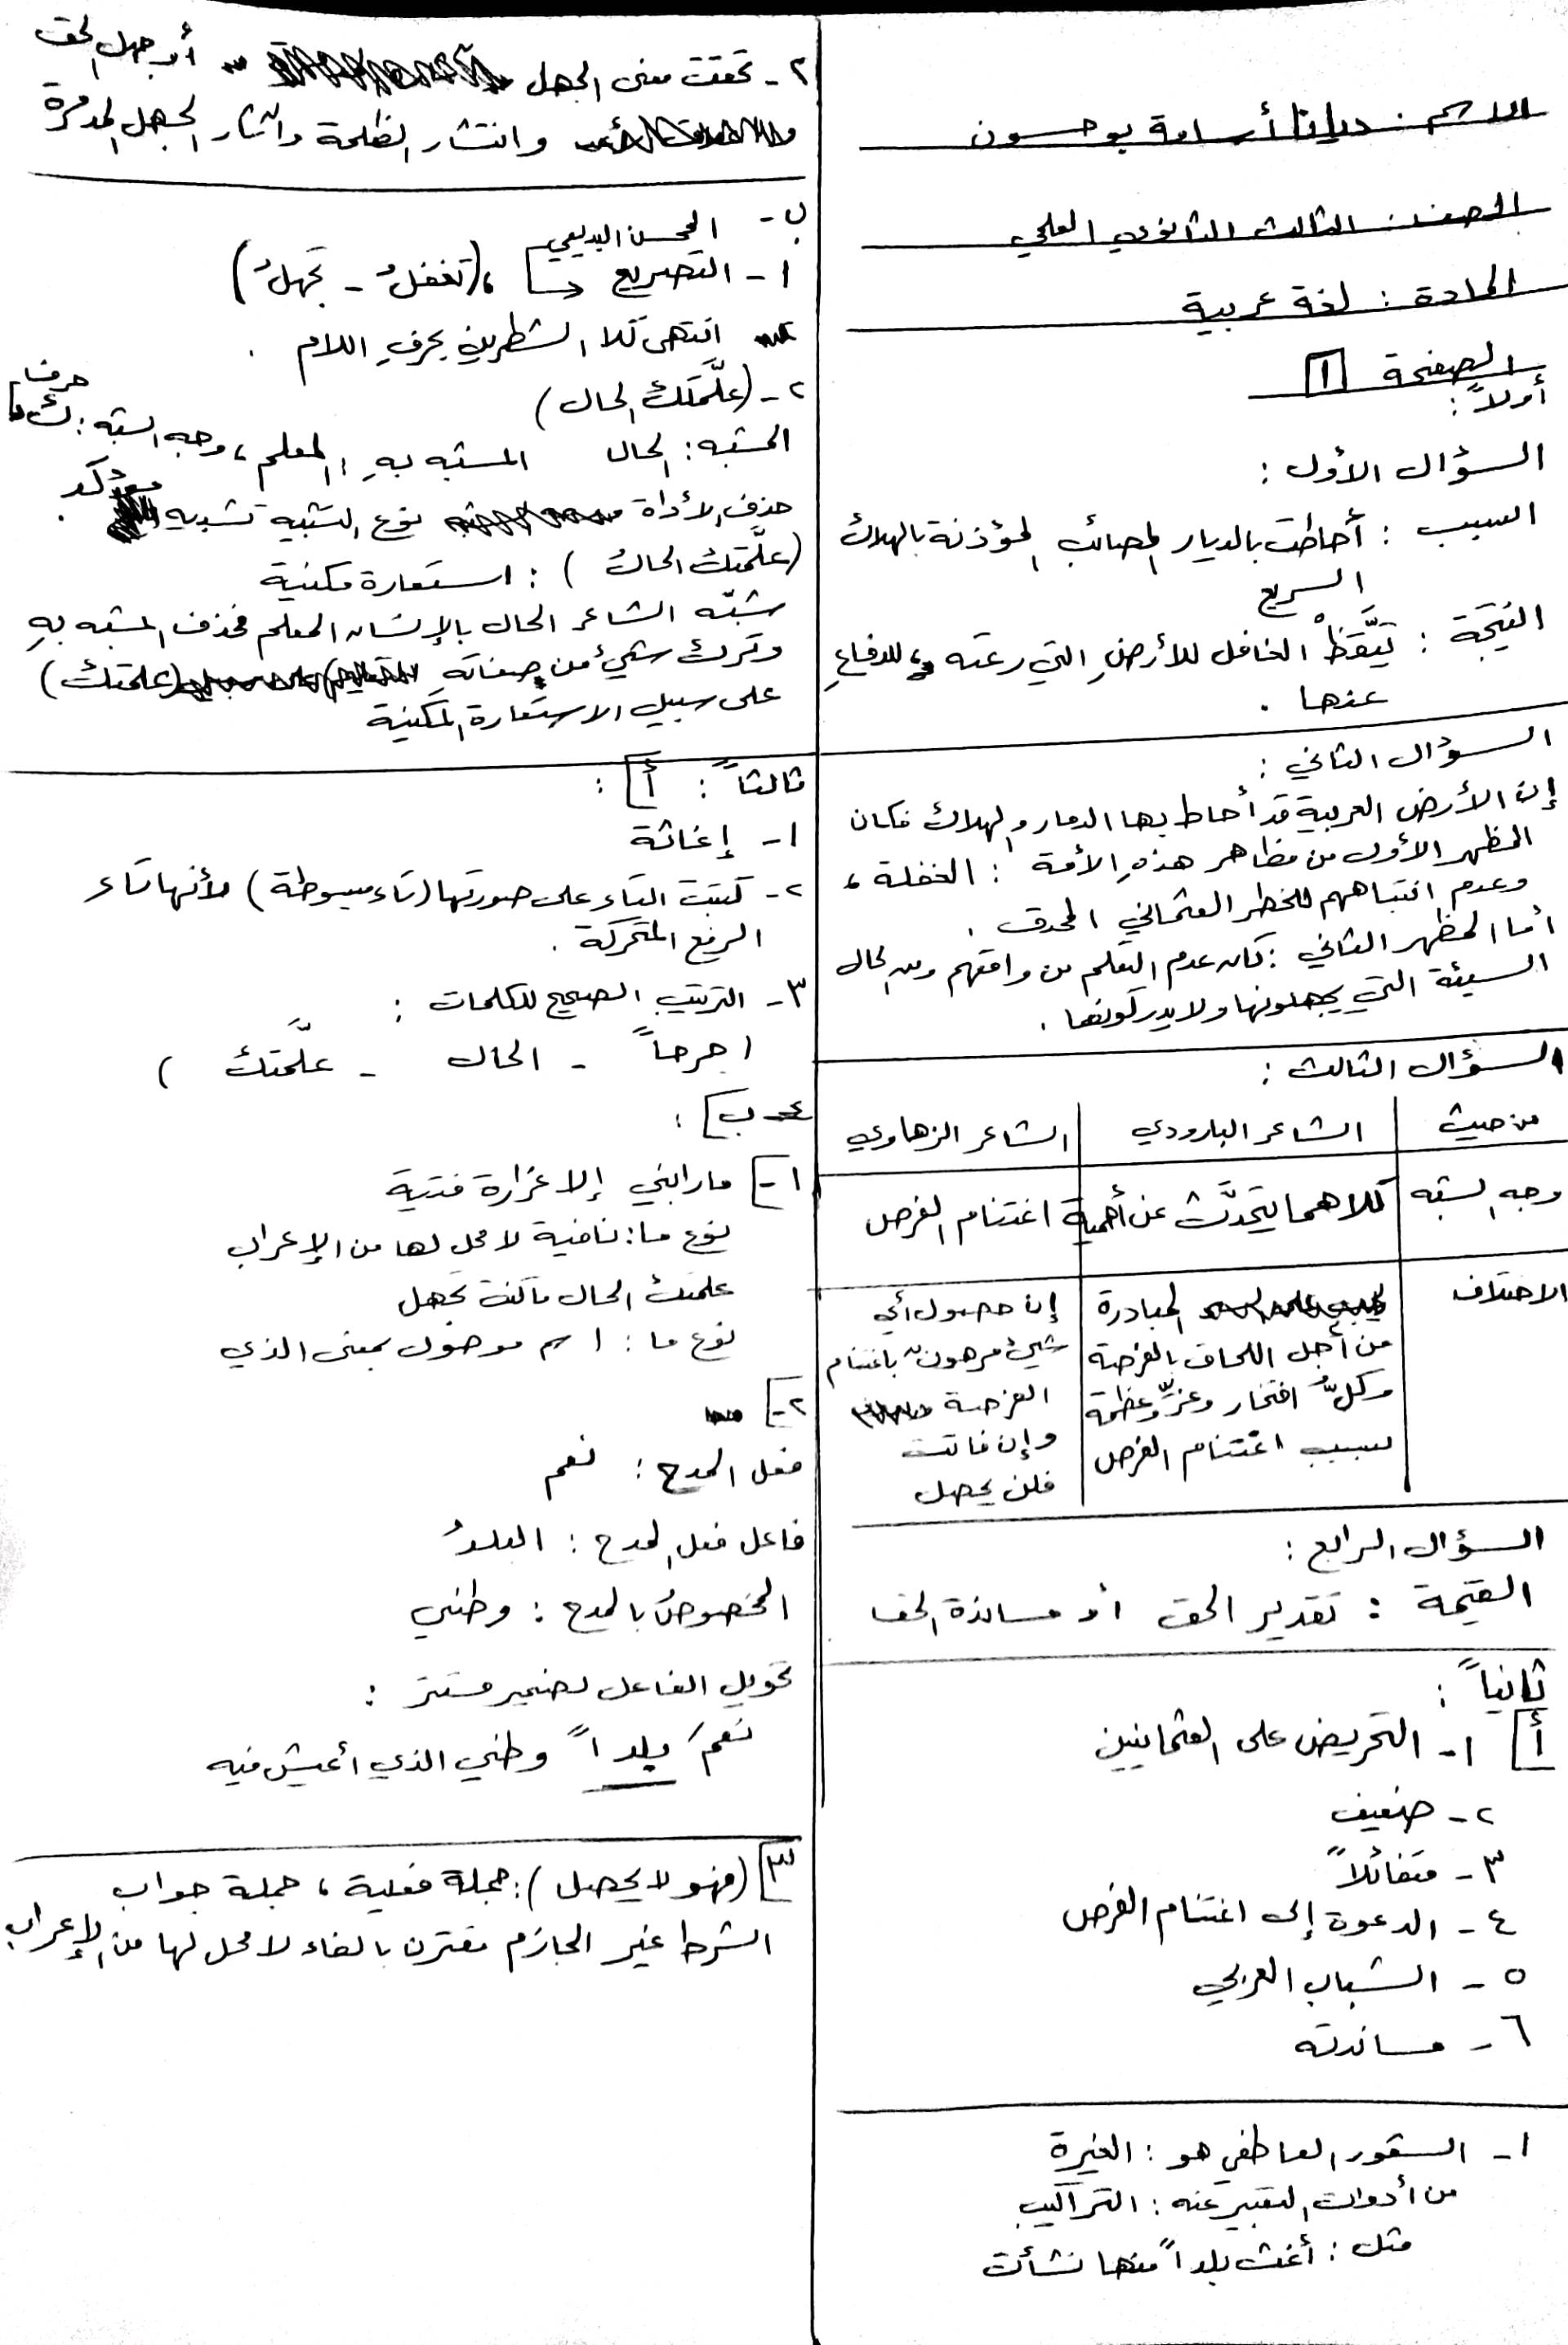 الاسم : ديانا أسامة بوحسون
الصف : الثالث الثانوي العلمي
المادة : لغة عربية
الصفحة 1
أولاً :
السؤال الأول :
السبب : أحاطت بالديار المصائب المؤذنة بالهلاك
السريع
النتيجة : تيَّقظْ الغافل للأرضِ التي رعته للدفاعِ
عنها .
السؤال الثاني :
إن الأرض العربية قد أحاط بها الدمار والهلاك فكان
المظهر الأول من مظاهر هذهِ الأمة : الغفلة ،
وعدم انتباههم للخطر العثماني المحدق .
أما المظهر الثاني : كان عدم التعلم من واقعهم ومن الحال
السيئة التي يجهلونها ولا يدركونها .
السؤال الثالث :
من حيث الشاعر البارودي الشاعر الزهاوي
وجه الشبه كلاهما يتحدَّث عن أهمية اغتنام الفرص
الاختلاف المبادرة إن حصول أي
من أجل اللحاق بالفرصة شيئ مرهونٌ باغتنام
وكلُّ افتخار وعزٍّ وعظمة الفرصة
بسبب اغتنام الفرص وإن فاتت
فلن يحصل
السؤال الرابع :
القيمة : تقدير الحق أو مساندة الحق
ثانياً :
أ] ١- التحريض على العثمانيين
٢- ضعيف
٣- متفائلاً
٤- الدعوة إلى اغتنام الفرص
٥- الشباب العربي
٦- مساندته
١- الشعور العاطفي هو : الغيرة
من أدوات التعبير عنه : التراكيب
مثل : أغث بلداً منها نشأت
٢- تحققت معنى الجهل أو جهل الحق
وانتشار الظلمة وانتشار الجهل المدمرة
ب - المحسن البديعي
١- التصريع ، (تغفلُ - تجهلُ)
انتهى كلا الشطرين بحرفِ اللام .
٢- (علَّمتك الحال)
المشبه : الحال المشبه بهِ : المعلم ، وجه الشبه : حرف ك
حذف الأداة نوع التشبيه تشبيه مؤكد .
(علَّمتك الحالُ ) : استعارة مكنية
شبّه الشاعر الحال بالإنسان المعلم فحذف المشبه بهِ
وترك شيئ من صفاتهِ (علمتك)
على سبيل الاستعارة المكنية
ثالثاً : أ] :
١- إغاثة
٢- كتبت التاء على صورتها (تاء مبسوطة) لأنها تاء
الرفع المتحركة .
٣- الترتيب الصحيح للكلمات :
( جرحاً - الحال - علَّمتك )
ب] :
١-] ما رابني إلا غرارة فتية
نوع ما : نافية لا محل لها من الإعراب
علمتك الحال ما كنت تجهل
نوع ما : اسم موصول بمعنى الذي
٢-]
فعل المدح : نعم
فاعل فعل المدح : البلدُ
المخصوصُ بالمدح : وطني
تحويل الفاعل لضمير مستتر :
نعمَ بلداً وطني الذي أعيش فيه
٣] (فهو لا يحصل) : جملة فعلية ، جملة جواب
الشرط غير الجازم مقترن بالفاء لا محل لها من الإعراب